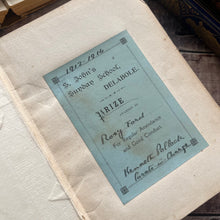 1913-1914
S. John's
Sunday School,
DELABOLE.
PRIZE
AWARDED TO
Roxy Ford
For Regular Attendance
and Good Conduct.
Kenneth Pollock
Curate in Charge